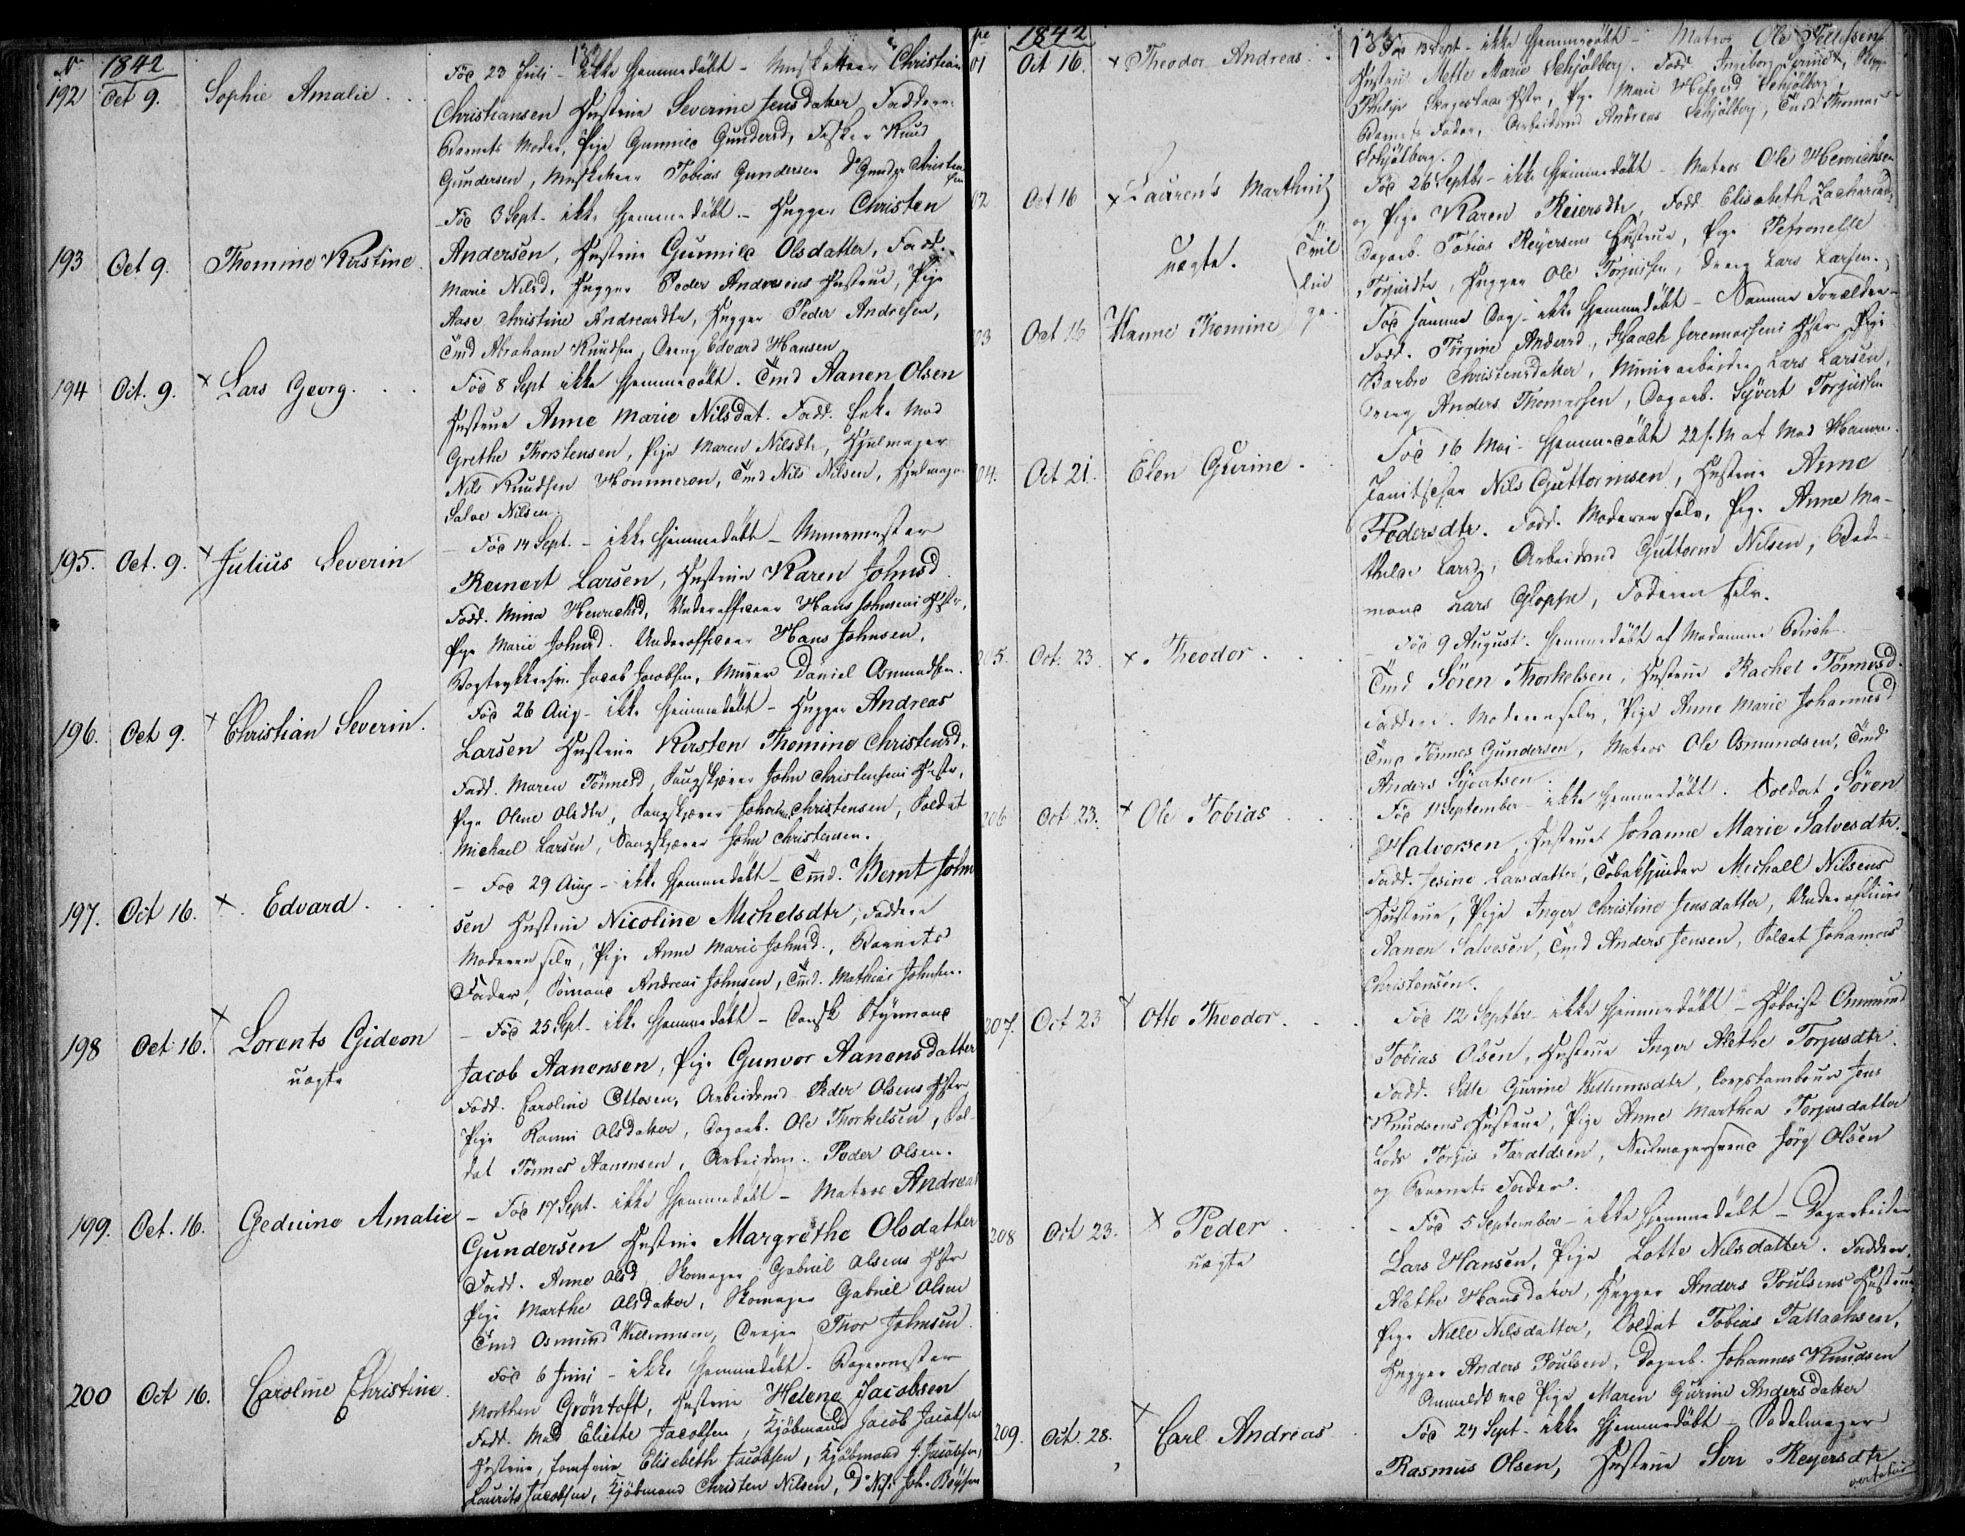 No 1842
192 Oct 9. Sophie Amalie . .
Föd 23 Juli - ikke hjemmedöbt - Musketeer Christian
Christiansen Hustrue Severine Jensdatter Faddere
Barnets Moder, Pige Gunnild Gundersd, Fisker Knud
Gundersen, Musketeer Tobias Gundersen Do Gunder Christen
sen
193 Oct 9. Thomine Kirstine.
Föd 3 Sept. ikke hjemmedöbt. - Hugger Christen
Andersen, Hustrue Gunnild Olsdatter, Fadd.
Marie Nilsd. Hugger Peder Andresens Hustrue, Pige
Aase Christine Andreasdtr, Hugger Peder Andresen,
Tmd Abraham Knudsen, Dreng Edvard Hansen
194 Oct. 9. x Lars Georg. . .
Föd 8 Sept ikke hjemmedöbt. Tmd Aanen Olsen
Hustrue Anne Marie Nilsdat. Fadd. Enke Mad
Grethe Thorstensen, Pige Maren Nilsdtr, Hjulmager
Nils Knudsen Hommeren, Tmd Nils Nilsen, Hjulmager
Salve Nilsen.
195. Oct. 9. x Julius Severin
- Föd 14 Sept. - ikke hjemmedöbt - Muurmester
Reinert Larsen, Hustrue Karen Johnsd.
Fadd. Mina Henrichsd, Underofficeer Hans Johnsens Hstr,
Pige Marie Johnsd. Underofficeer Hans Johnsen,
Bogtrykkersv. Jacob Jacobsen, Murer Daniel Osmundsen.
196. Oct 9. x Christian Severin.
Föd 26 Aug - ikke hjemmedöbt - Hugger Andreas
Larsen Hustrue Kirsten Thomine Christensd,
Fadd. Maren Tönnesd, Saugskjærer John Christensens Hstr,
Pige Olene Olsdtr, Saugskjærer Johannes Christensen, Soldat
Michael Larsen, Saugskjærer John Christensen.
197. Oct 16. x . Edvard . . .
- Föd 29 Aug - ikke hjemmedöbt - Tmd. Bernt John
sen Hustrue Nicoline Michelsdtr, Faddere
Moderen selv, Pige Anne Marie Johnsd., Barnets
Fader, Sömand Andreas Johnsen, Tmd. Mathias Johnsen.
198 Oct 16. x Lorents Gideon
uægte
- Föd 25 Sept - ikke hjemmedöbt - Dansk Styrmand
Jacob Aanensen, Pige Gunvor Aanensdatter
Fadd. Caroline Ottosen, Arbeidsmd Peder Olsens Hstr,
Pige Ranni Olsdatter, Dagarb. Ole Thorkelsen, Sol-
dat Tönnes Aanensen, Arbeidsm. Peder Olsen.
199. Oct. 16. Geduine Amalie
- Föd 17 Sept. ikke hjemmedöbt - Matros Andreas
Gundersen Hustrue Margrethe Olsdatter
Fadd. Anne Olsd, Skomager Gabriel Olsens Hstr
Pige Marthe Olsdatter, Skomager Gabriel Olsen
Tmd Osmund Willumsen, Dreier Thor Johnsen.
200 Oct 16. Caroline Christine.
Föd 6 Juni - ikke hjemmedöbt - Bagermester
Morthen Gröntoft, Hustrue Helene Jacobsen
Fadd. Mad Eliethe Jacobsen, Kjöbmand Jacob Jacobsens
Hustrue, Jomfrue Elisabeth Jacobsen, Kjöbmand J. Jacobsen,
Laurits Jacobsen, Kjöbmand Christen Nilsen, Do Nils Joh. Böysen
1842 133
01 Oct 16. x Theodor Andreas . .
Föd 13 Sept - ikke hjemmedöbt - Matros Ole Tellefsen
Hustrue Mette Marie Schjølberg. Fadd. Ingeborg
Philip Hstr, Pige Marie Schjølberg,
Barnets Fader, Arbeidsmd Andreas Schjølberg, Tmd Thomas
Schjølberg.
02 Oct 16 x Laurents Marthin
uægte. Tvil
lin
ge.
Föd 26 Septbr - ikke hjemmedöbt - Matros Ole Henrichsen
og Pige Karen Reiersdtr, Fadd. Elisabeth Zachariasd,
Dagarb. Tobias Reyersens Hustrue, Pige Petronelle
Torjusdtr, Hugger Ole Torjussen, Dreng Lars Larsen.
03 Oct 16 Hanne Thomine
Föd samme Dag - ikke hjemmedöbt - Samme Forældre -
Fadd. Torgine Andersd, Isaach Jeremiassens Hstr Pige
Barbro Christensdatter, Minearbeider Lars Larsen,
Dreng Anders Thomassen, Dagarb. Syvert Torjussen
204. Oct 21. Elen Gurine . .
Föd 16 Mai - hjemmedöbt 22 s. M af Mad Hanson.
Janitschar Nils Guttormsen, Hustrue Anne
Pedersdtr. Fadd. Moderen selv, Pige Anne Ma-
thilde Larsd, Arbeidsmd Guttorm Nilsen, Bade-
mand Lars Gloppe, Faderen selv.
205. Oct. 23. x . Theodor . . .
- Föd 9 August. hjemmedöbt af Madamme Birch -
Tmd Sören Thorkelsen, Hustrue Rachel Tönnesd.
Faddere. Moderen selv, Pige Anne Marie Johannesd
Tmd Tönnes Gundersen, Matros Ole Osmundsen, Tmd
Anders Syvertsen.
206 Oct 23. x Ole Tobias . . .
Föd 11 September - ikke hjemmedöbt. Soldat Sören
Halvorsen, Hustrue Johanne Marie Salvesdtr.
Fadd. Jesine Larsdatter, Tobakspinder Michall Nilsens
Hustrue, Pige Inger Christine Jensdatter, Underofficeer
Aanen Salvesen, Tmd Anders Jensen, Soldat Johannes
Christensen.
207. Oct 23 x Otto Theodor. . .
Föd 12 Septbr - ikke hjemmedöbt - Hoboist Osmund
Tobias Olsen, Hustrue Inger Alethe Torjusdtr.
Fadd. Sille Gurine Willumsdtr, Corpstambour Jens
Knudsens Hustrue, Pige Anne Marthea Torjusdatter
Lods Torjus Taraldsen, Seilmagersvend Jörg Olsen
og Barnets Fader.
208 Oct 23. x Peder . .
uægte
- Föd 5 September - ikke hjemmedöbt - Dagarbeider
Lars Hansen, Pige Lotte Nilsdatter. Faddere.
Alethe Hansdatter, Hugger Anders Poulsens Hustrue
Pige Nille Nilsdatter, Soldat Tobias Tallachsen,
Hugger Anders Poulsen, Dagarb. Johannes Knudsen
Anmeldt ved Pige Maren Gurine Andersdatter
209. Oct. 28. x Carl Andreas
Föd 24 Sept - ikke hjemmedöbt - Sadelmager
Rasmus Olsen, Hustrue Siri Reyersdtr
vertatur